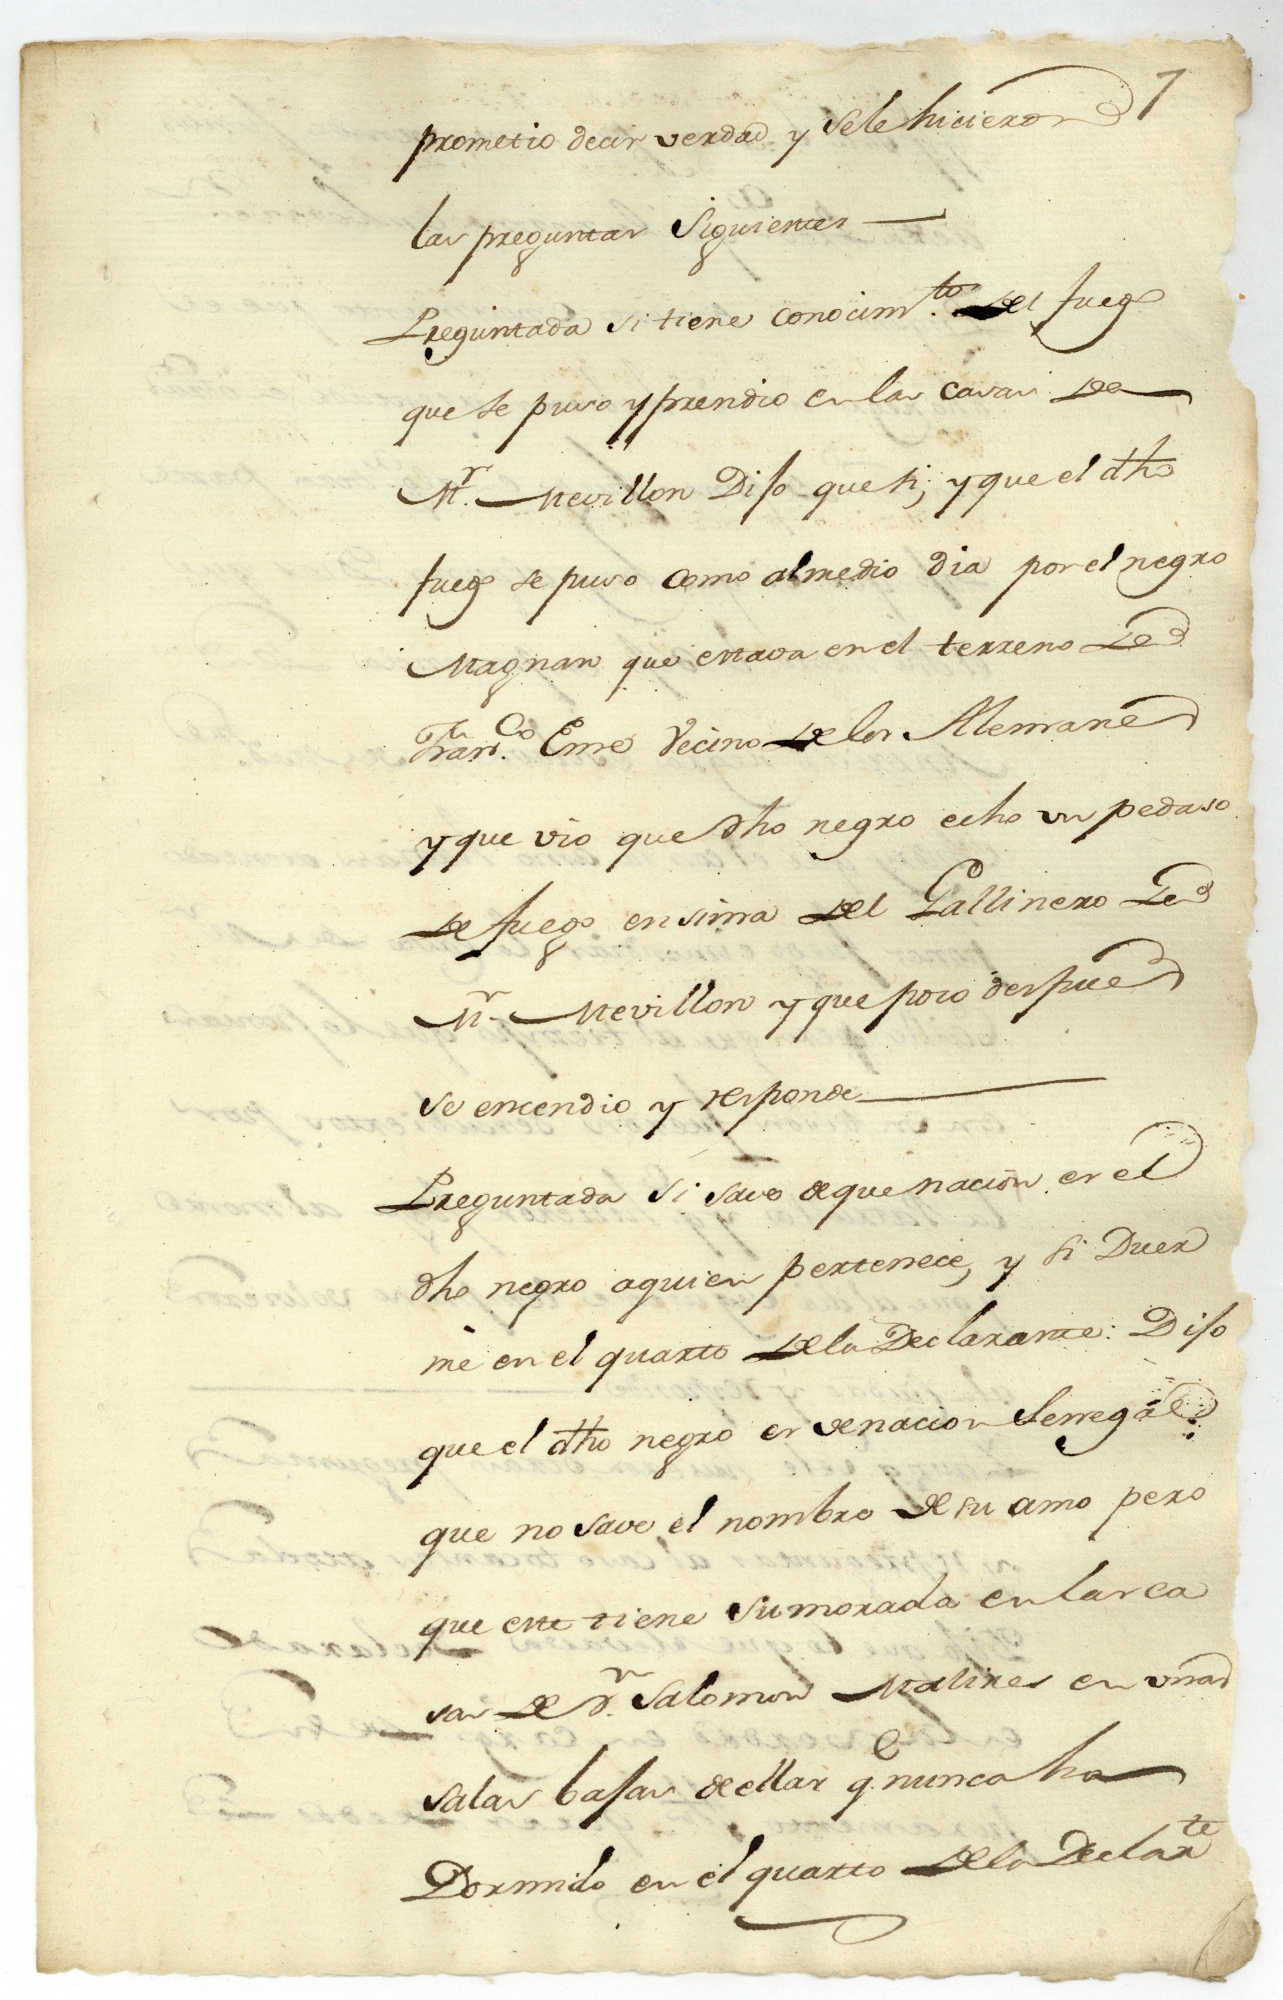 7
prometio decir verdad y sele hicieron
las preguntas Siguientes
Preguntada si tiene conocim.to del fuego
que se puso y prendio en las casas de
Mr. Mevillon Dijo que si, y que el dho
fuego se puso como al medio dia por el negro
Magnan que estava en el terreno de
Fran.co Eme Vecino de los Alemanes
y que vio que dho negro echo un pedaso
de fuego ensima del Gallinero de
Mr. Mevillon y que poco despues
se encendio y responde
Preguntada si save de que nacion es el
dho negro a quien pertenece, y si Duer
me en el quarto de la Declarante: Dijo
que el dho negro es de nacion Senegal
que no save el nombre de su amo pero
que este tiene su morada en las ca
sas de Dr. Salomon Malines en unas
salas bajas de ellas q.e nunca ha
Dormido en el quarto de la Declarte